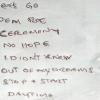 LETS GO
DEM RDC
CEREMONY
NO HOPE
I DIDNT KNEW
OUT OF MY DREAMS
STOP + START
DAYTIME